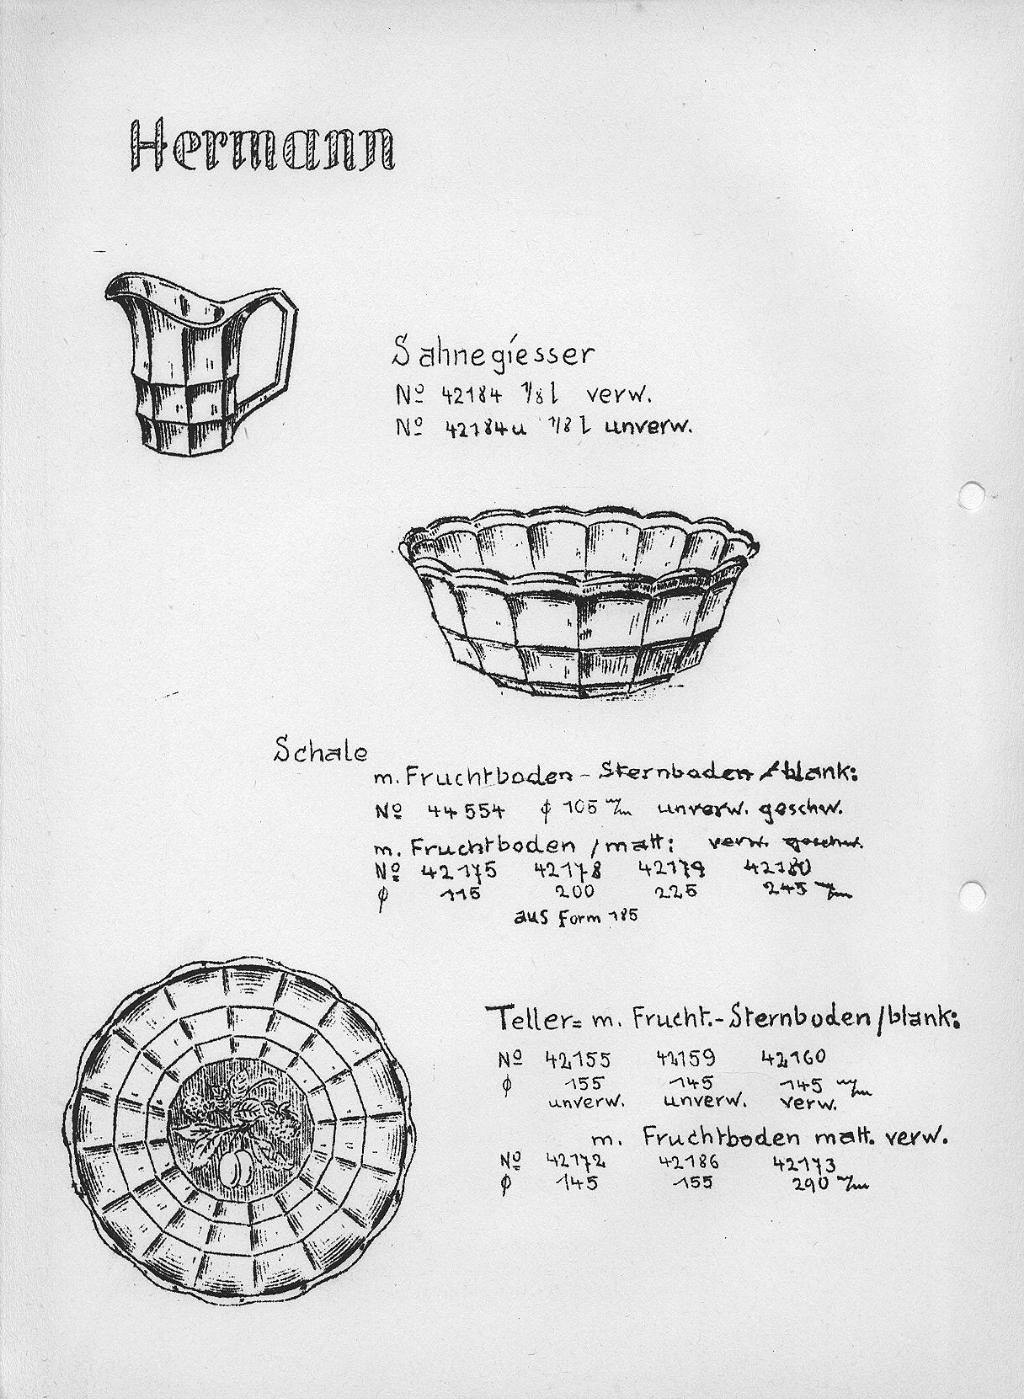 Hermann
Sahnegiesser
Nº 42184 1/8 l verw.
Nº 42184u 1/8 l unverw.
Schale
m. Fruchtboden - Sternboden / blank:
Nº 44554 ϕ 105 m/m unverw. geschw.
m. Fruchtboden / matt: verw. geschw.
Nº 42175 42178 42179 42180
ϕ 115 200 225 245 m/m
aus Form 185
Teller= m. Frucht.-Sternboden/blank:
Nº 42155 42159 42160
ϕ 155 145 145 m/m
unverw. unverw. verw.
m. Fruchtboden matt. verw.
Nº 42172 42186 42173
ϕ 145 155 290 m/m